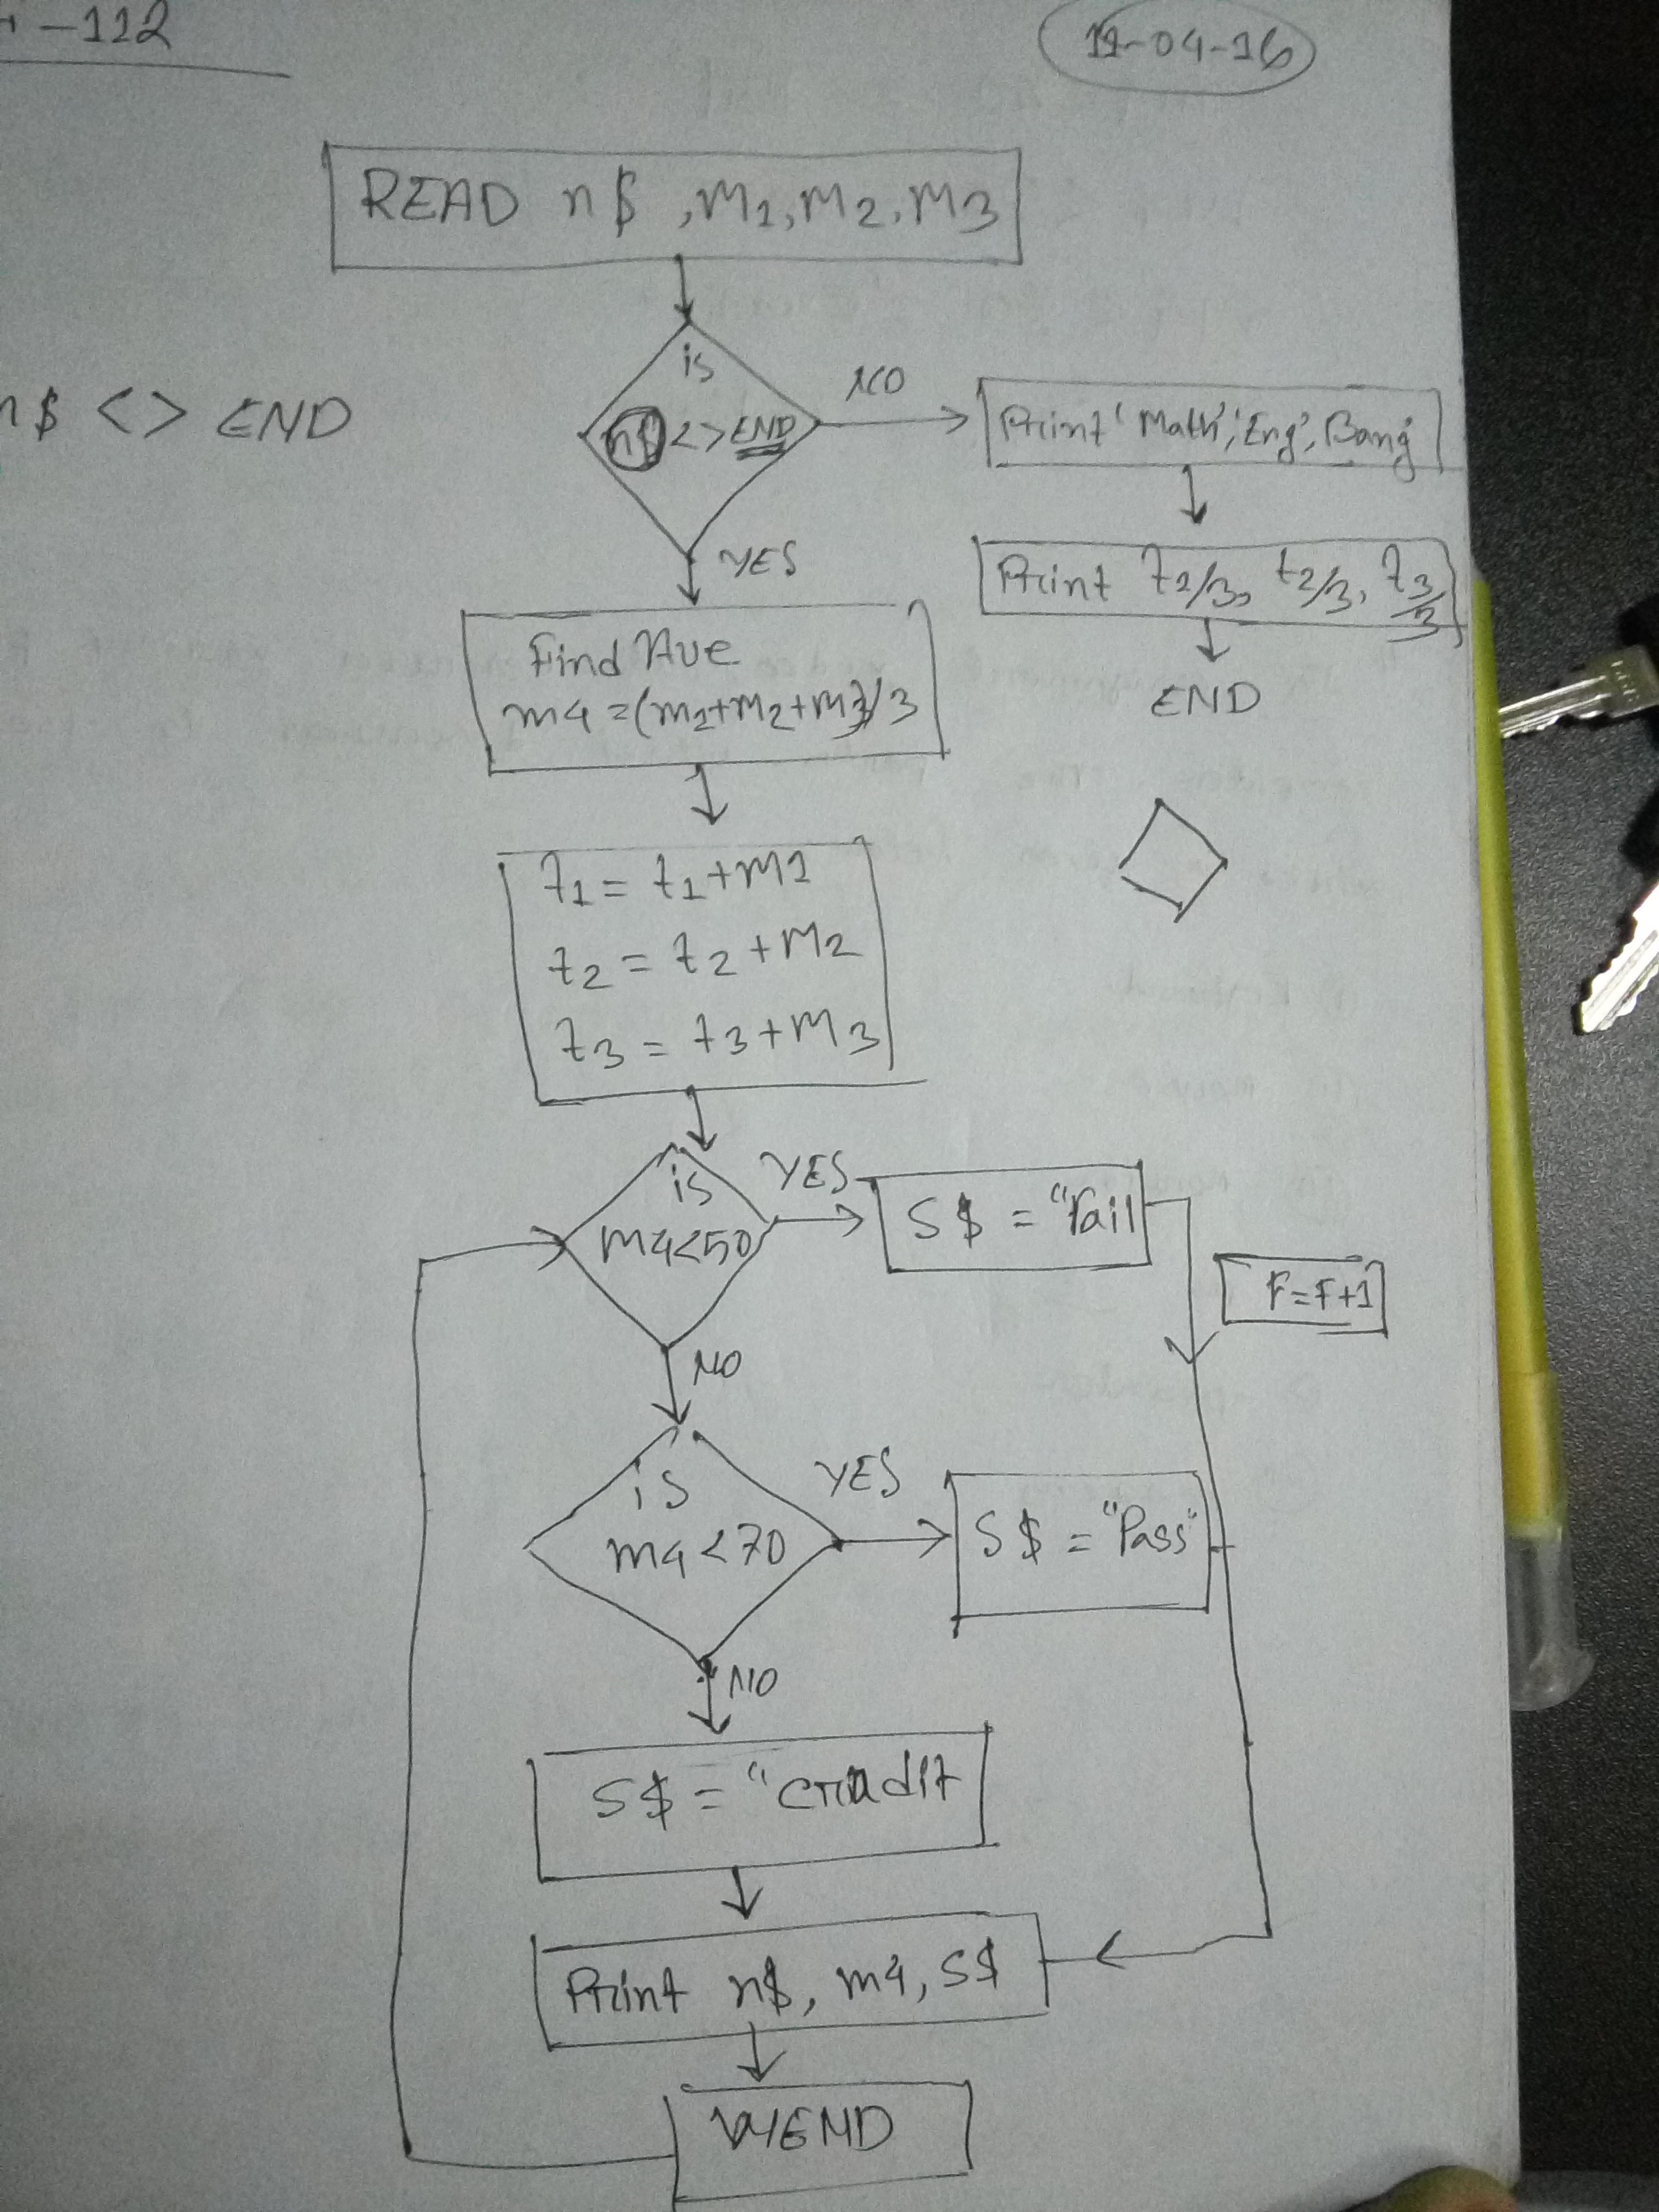 -112
11-04-16
READ n$, m1, m2, m3
is
n$ <> END
NO
Print 'Math', 'Eng', Bang'
n$ <> END
YES
Print t2/3, t2/3, t3/3
Find Ave
m4 = (m2+m2+m3)/3
END
t1 = t1+m1
t2 = t2+m2
t3 = t3+m3
is
m4<50
YES
S$ = "Fail
F=F+1
NO
is
m4<70
YES
S$ = "Pass"
NO
S$ = "Cradit
Print n$, m4, S$
WEND